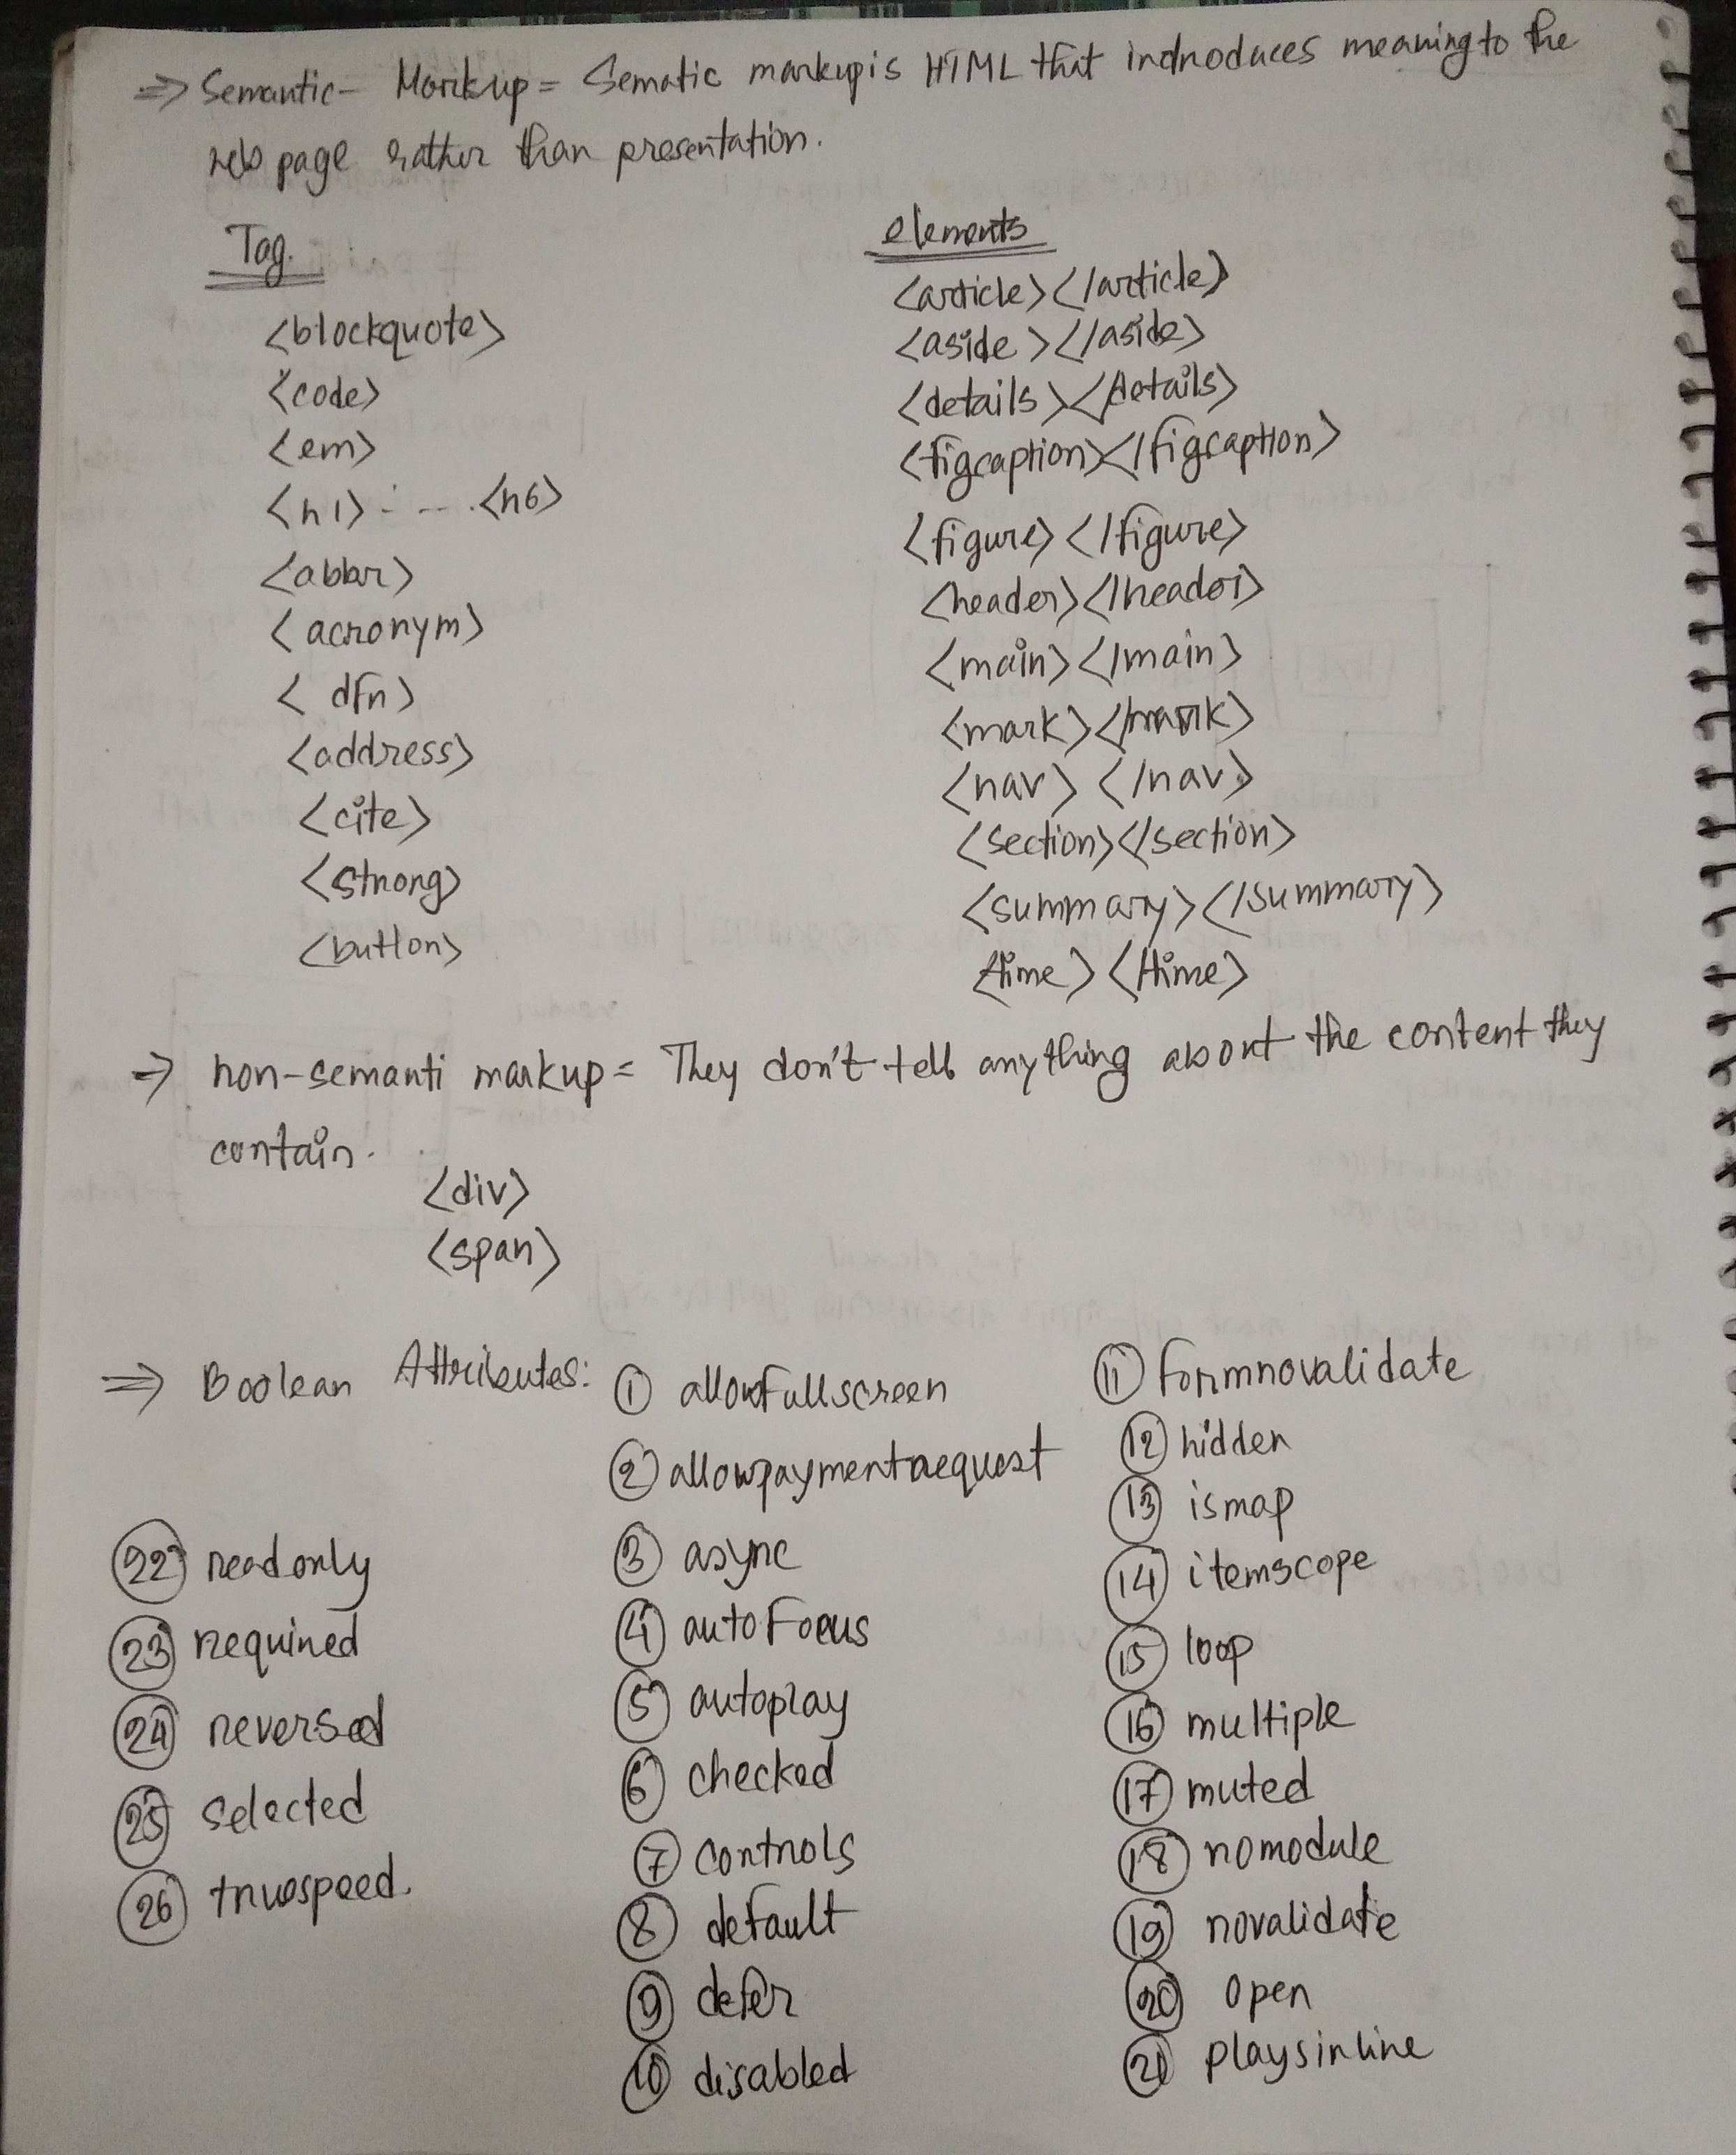 ⇒ Semantic- Markup = Sematic markup is HTML that indroduces meaning to the
web page rather than presentation.
Tag.
<blockquote>
<code>
<em>
<h1> - - - . <h6>
<abbr>
<acronym>
<dfn>
<address>
<cite>
<strong>
<button>
elements
<article></article>
<aside></aside>
<details></details>
<figcaption></figcaption>
<figure></figure>
<header></header>
<main></main>
<mark></mark>
<nav></nav>
<section></section>
<summary></summary>
<time></time>
⇒ non-semanti markup = They don't tell anything about the content they
contain.
<div>
<span>
⇒ Boolean Attributes:
① allowfullscreen
② allowpaymentrequest
③ async
④ autoFocus
⑤ autoplay
⑥ checked
⑦ controls
⑧ default
⑨ defer
⑩ disabled
⑪ formnovalidate
⑫ hidden
⑬ ismap
⑭ itemscope
⑮ loop
⑯ multiple
⑰ muted
⑱ nomodule
⑲ novalidate
⑳ open
㉑ playsinline
㉒ readonly
㉓ required
㉔ reversed
㉕ selected
㉖ truespeed.